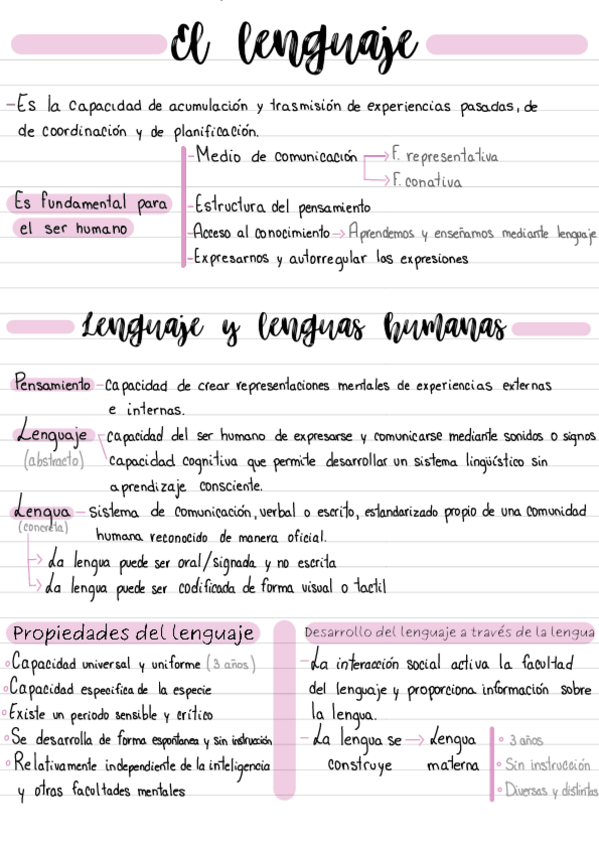 El lenguaje
-Es la capacidad de acumulación y trasmisión de experiencias pasadas, de
de coordinación y de planificación.
Es fundamental para
el ser humano
-Medio de comunicación → F. representativa
→ F. conativa
-Estructura del pensamiento
-Acceso al conocimiento → Aprendemos y enseñamos mediante lenguaje
-Expresarnos y autorregular las expresiones
Lenguaje y lenguas humanas
Pensamiento - Capacidad de crear representaciones mentales de experiencias externas
e internas.
Lenguaje - Capacidad del ser humano de expresarse y comunicarse mediante sonidos o signos
(abstracto) Capacidad cognitiva que permite desarrollar un sistema lingüístico sin
aprendizaje consciente.
Lengua - Sistema de comunicación, verbal o escrito, estandarizado propio de una comunidad
(concreta) humana reconocido de manera oficial.
→ La lengua puede ser oral/signada y no escrita
→ La lengua puede ser codificada de forma visual o tactil
Propiedades del lenguaje
° Capacidad universal y uniforme (3 años)
° Capacidad especifica de la especie
° Existe un periodo sensible y crítico
° Se desarrolla de forma espontanea y sin instrucción
° Relativamente independiente de la inteligencia
y otras facultades mentales
Desarrollo del lenguaje a través de la lengua
- La interacción social activa la facultad
del lenguaje y proporciona información sobre
la lengua.
- La lengua se → Lengua
construye materna
° 3 años
° Sin instrucción
° Diversas y distintas